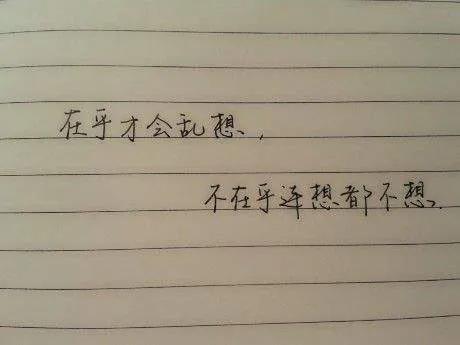 在乎才会乱想,
不在乎连想都不想。